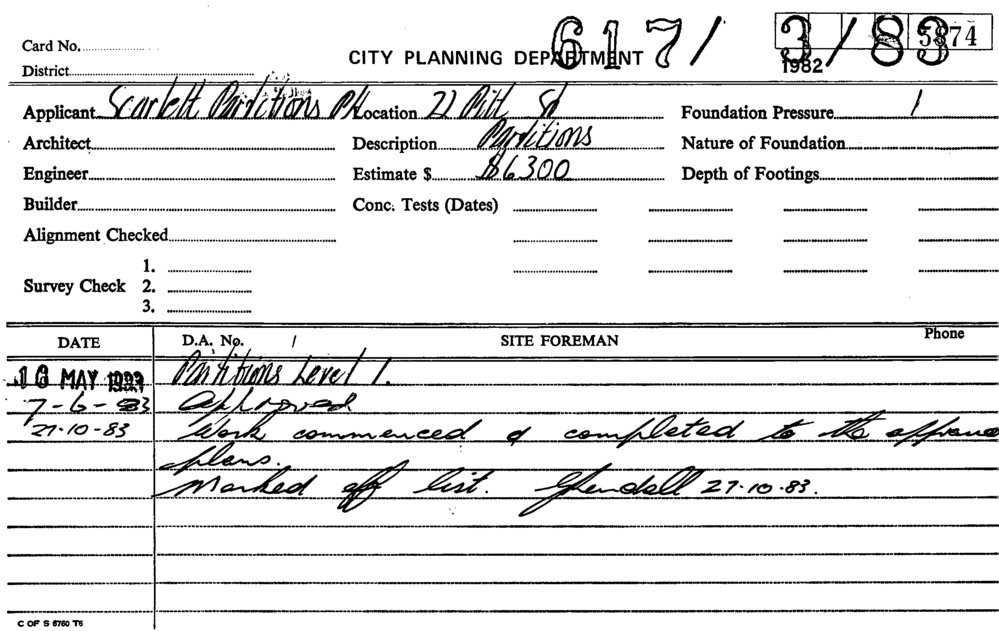 Card No.
CITY PLANNING DEPARTMENT 617/ 3/83 5874
1982
District
Applicant Scarlett Partitions P/L Location 22 Pitt St Foundation Pressure
Architect Description Partitions Nature of Foundation
Engineer Estimate $ $6300 Depth of Footings
Builder Conc. Tests (Dates)
Alignment Checked
1.
Survey Check 2.
3.
DATE D.A. No. SITE FOREMAN Phone
16 MAY 1983 Partitions Level 1.
7-6-83 Approved
27-10-83 Work commenced & completed to the approved
plans.
Marked off list. 27.10.83.
C OF S 6760 T6